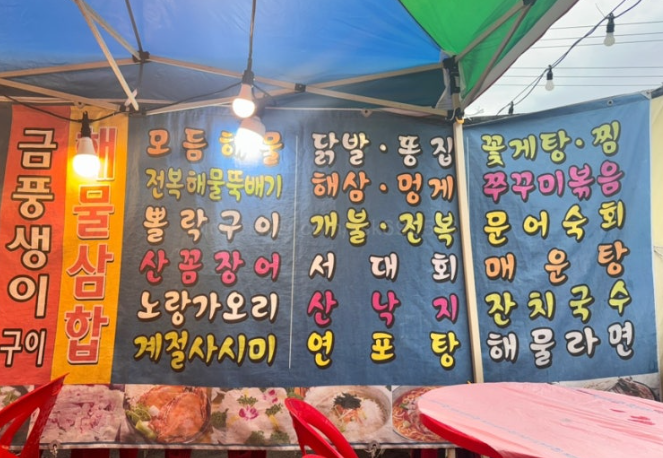 금풍생이
구이
해물삼합
모듬해물
전복해물뚝배기
뽈락구이
산꼼장어
노랑가오리
계절사시미
닭발·똥집
해삼·멍게
개불·전복
서대회
산낙지
연포탕
꽃게탕·찜
쭈꾸미볶음
문어숙회
매운탕
잔치국수
해물라면